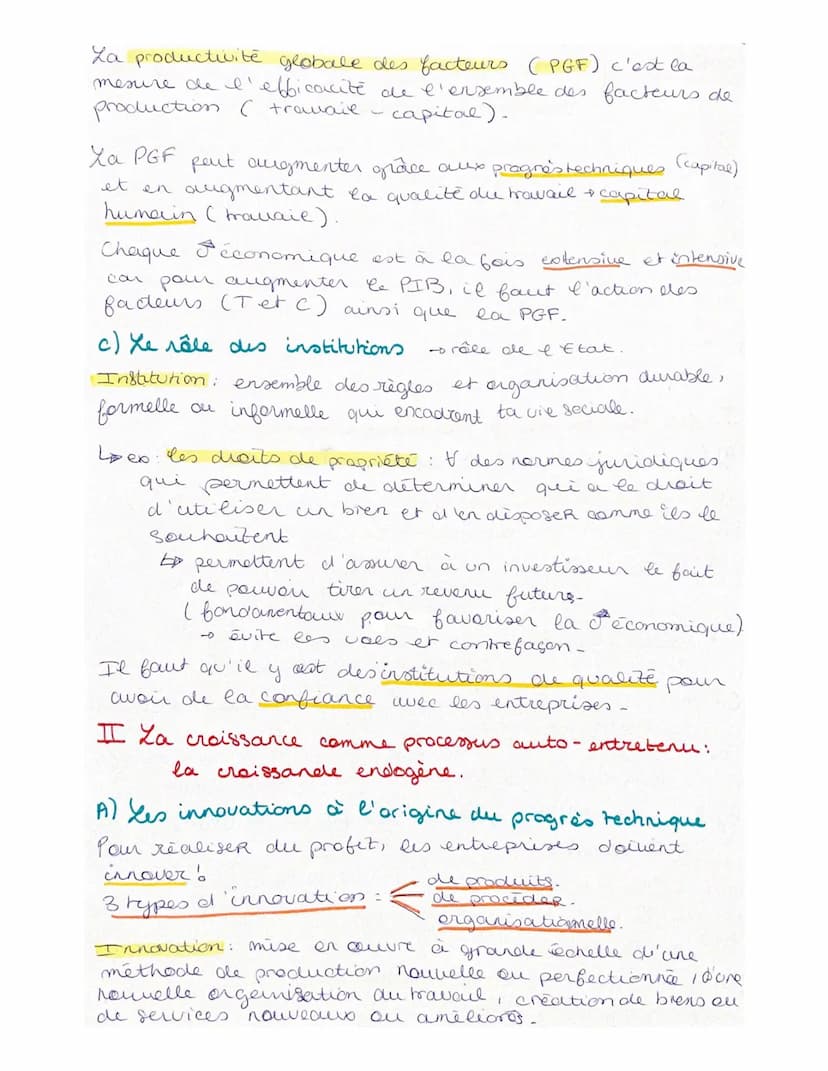 La productivité globale des facteurs (PGF) c'est la
mesure de l'efficacité de l'ensemble des facteurs de
production (travail - capital).
La PGF peut augmenter grâce aux progrès techniques (capital)
et en augmentant la qualité du travail → capital
humain (travail).
Chaque ↗ économique est à la fois extensive et intensive
car pour augmenter le PIB, il faut l'action des
facteurs (T et C) ainsi que la PGF.
c) Le rôle des institutions → rôle de l'Etat.
Institution : ensemble des règles et organisation durable,
formelle ou informelle qui encadrent la vie sociale.
↳ ex : les droits de propriété : ∀ des normes juridiques
qui permettent de déterminer qui a le droit
d'utiliser un bien et d'en disposer comme ils le
souhaitent
↳ permettent d'assurer à un investisseur le fait
de pouvoir tirer un revenu future.
(fondamentaux pour favoriser la ↗ économique)
→ évite les vols et contrefaçon.
Il faut qu'il y est des institutions de qualité pour
avoir de la confiance avec les entreprises.
II La croissance comme processus auto-entretenu :
la croissance endogène.
A) Les innovations à l'origine du progrès technique
Pour réaliser du profit, les entreprises doivent
innover !
3 types d'innovation :
de produits.
de procéder.
organisationnelle.
Innovation : mise en œuvre à grande échelle d'une
méthode de production nouvelle ou perfectionné, d'une
nouvelle organisation du travail, création de biens ou
de services nouveaux ou améliorés.